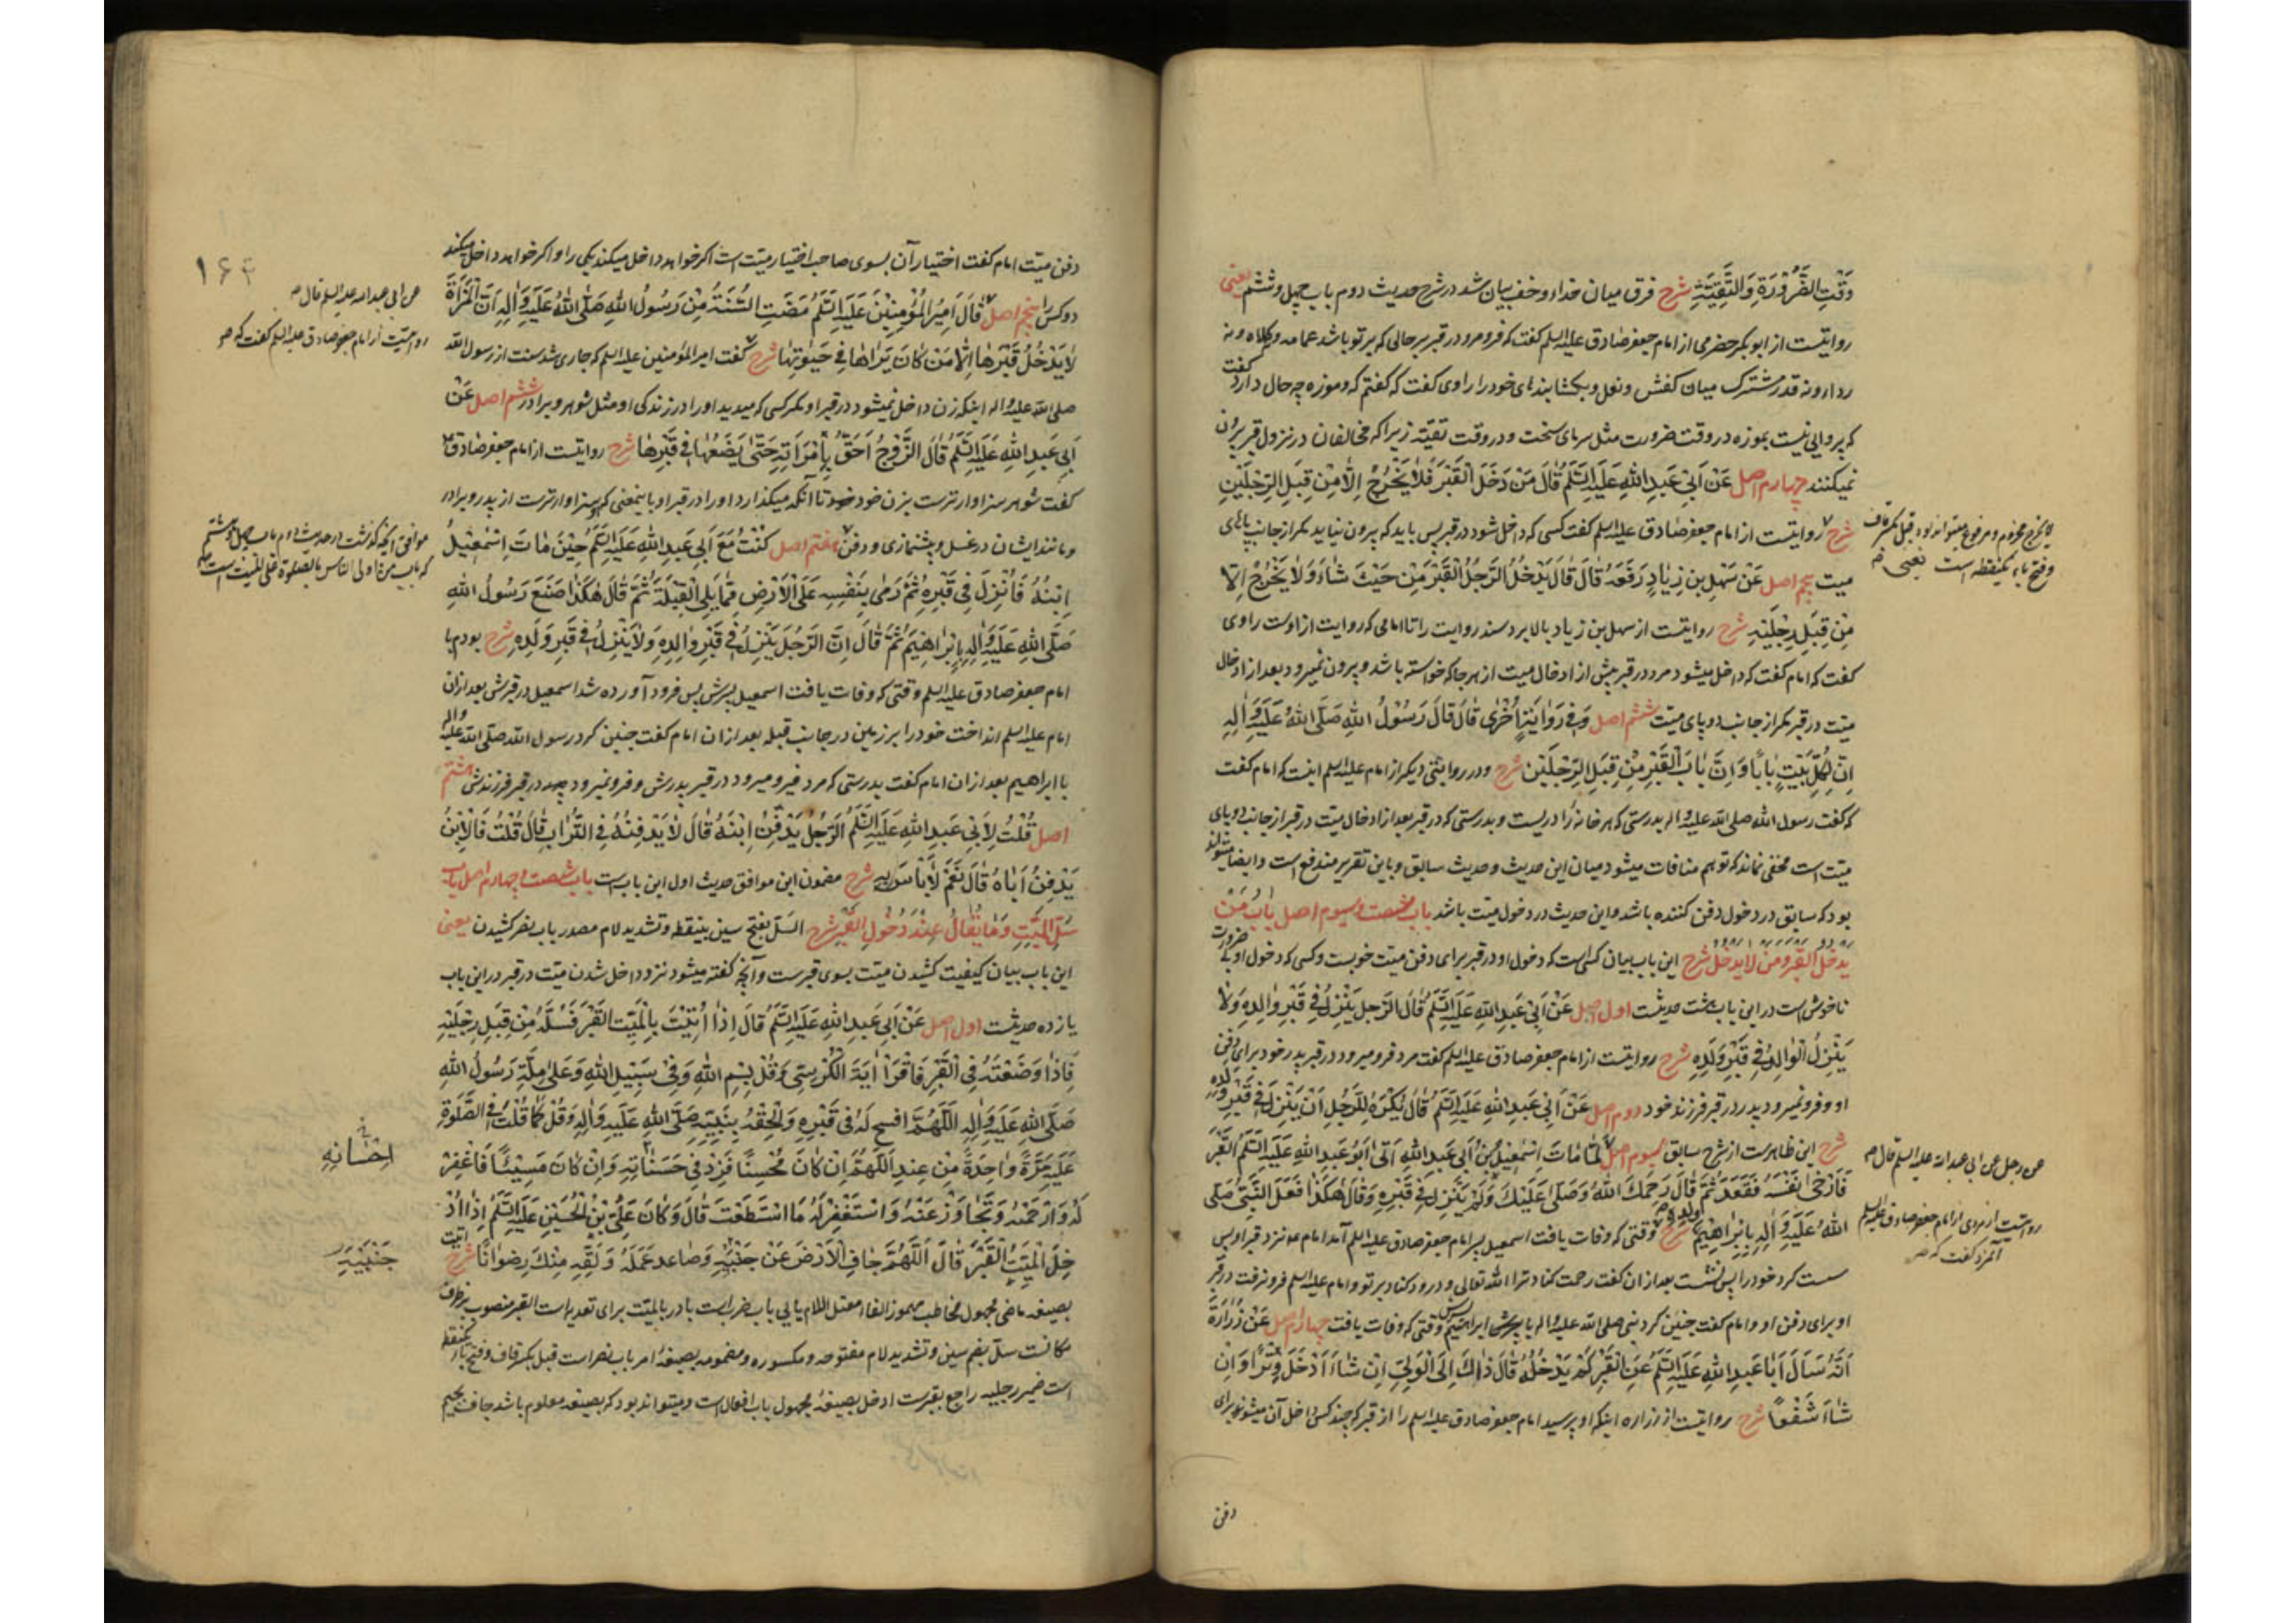 وَقْتِ الضَّرُوْرَةِ وَالتَّقِيَّةِ شرح فرق میان حذاء و خف بیان شد در شرح حدیث دوم باب چهل و ششم یعنی
روایتست از ابو بکر حضرمی از امام جعفر صادق علیه السلم گفت که فرو مرو در قبر بر حالی که بر تو باشد عمامه و کلاه و نه
رداء و نه قدر مشترک میان کفش و نعل و بکشا بندهای خود را راوی گفت که گفتم که و موزه چه حال دارد گفت
که پروایی نیست بموزه در وقت ضرورت مثل سرمای سخت و در وقت تقیّه زیرا که مخالفان در نزول قبر بیرون
نمیکنند چهارم اصل عَنْ اَبِیْ عَبدِ اللهِ عَلَیْهِ السَّلَمُ قَالَ مَنْ دَخَلَ الْقَبْرَ فَلا یَخْرُجْ اِلَّا مِنْ قِبَلِ الرِّجْلَیْنِ
شرح روایتست از امام جعفر صادق علیه السلم گفت کسی که داخل شود در قبر پس باید که بیرون نیاید مگر از جانب پاهای
میت پنجم اصل عَنْ سَهْلِ بنِ زِیَادٍ رَفَعَهُ قَالَ قَالَ یَدْخُلُ الرَّجُلُ الْقَبْرَ مِنْ حَیْثُ شَاءَ وَلَا یَخْرُجُ اِلَّا
مِنْ قِبَلِ رِجْلَیْهِ شرح روایتست از سهل بن زیاد بالا برد سند روایت را تا امامی که روایت از اوست راوی
گفت که امام گفت که داخل میشود مرد در قبر پیش از ادخال میت از هر جا که خواسته باشد و بیرون نمیرود بعد از ادخال
میّت در قبر مگر از جانب دو پای میّت ششم اصل وَفِی رِوَایَةٍ اُخْرٰی قَالَ قَالَ رَسُوْلُ اللهِ صَلَّی اللهُ عَلَیْهِ وَاٰلِهِ
اِنَّ لِکُلِّ بَیْتٍ بَابًا وَاِنَّ بَابَ الْقَبْرِ مِنْ قِبَلِ الرِّجْلَیْنِ شرح و در روایتی دیگر از امام علیه السلم اینست که امام گفت
که گفت رسول الله صلی الله علیه و اله بدرستی که هر خانه را دریست و بدرستی که در قبر بعد از ادخال میّت در قبر از جانب دو پای
میّت است مخفی نماند که توهم منافات میشود میان این حدیث و حدیث سابق و باین تقریر مندفع است و ایضا میتواند
بود که سابق در دخول دفن کننده باشد و این حدیث در دخول میّت باشد باب شصت و سیوم اصل بَابُ مَنْ
یَدْخُلُ الْقَبْرَ وَمَنْ لَا یَدْخُلُ شرح این باب بیان کسی است که دخول او در قبر برای دفن میّت خوبست و کسی که دخول او بی ضرورت
ناخوش است در این باب هشت حدیثست اول اصل عَنْ اَبِیْ عَبدِ اللهِ عَلَیْهِ السَّلَمُ قَالَ الرَّجُلُ یَنْزِلُ فِیْ قَبْرِ وَالِدِهِ وَلَا
یَنْزِلُ الْوَالِدُ فِیْ قَبْرِ وَلَدِهِ شرح روایتست از امام جعفر صادق علیه السلم گفت مرد فرو میرود در قبر پدر خود برای دفن
او و فرو نمیرود پدر در قبر فرزند خود دوم اصل عَنْ اَبِیْ عَبدِ اللهِ عَلَیْهِ السَّلَمُ قَالَ یُکْرَهُ لِلرَّجُلِ اَنْ یَنْزِلَ فِیْ قَبْرِ وَلَدِهِ
شرح این ظاهرست از شرح سابق سیوم اصل لَمَّا مَاتَ اِسْمٰعِیْلُ بْنُ اَبِیْ عَبدِ اللهِ اَتٰی اَبُوْ عَبدِ اللهِ عَلَیْهِ السَّلَمُ الْقَبْرَ
فَاَرْخٰی نَفْسَهُ فَقَعَدَ ثُمَّ قَالَ رَحِمَكَ اللهُ وَصَلّٰی عَلَیْكَ وَلَمْ یَنْزِلْ فِیْ قَبْرِهِ وَقَالَ هٰکَذَا فَعَلَ النَّبِیُّ صَلَّی
اللهُ عَلَیْهِ وَاٰلِهِ بِاِبْرَاهِیْمَ ولده شرح وقتی که وفات یافت اسمعیل پسر امام جعفر صادق علیه السلم آمد امام ع نزد قبر او پس
سست کرد خود را پس نشست بعد از ان گفت رحمت کناد ترا الله تعالی و درود کناد بر تو و امام علیه السلم فرو نرفت در قبر
او برای دفن او و امام گفت چنین کرد نبی صلی الله علیه و اله با پسرش ابراهیم وقتی که وفات یافت چهارم اصل عَنْ زُرَارَةَ
اَنَّهُ سَاَلَ اَبَا عَبدِ اللهِ عَلَیْهِ السَّلَمُ عَنِ الْقَبْرِ کَمْ یَدْخُلُهُ قَالَ ذَاكَ اِلَی الْوَلِیِّ اِنْ شَاءَ اَدْخَلَ وِتْرًا وَاِنْ
شَاءَ شَفْعًا شرح روایتست از زراره اینکه او پرسید امام جعفر صادق علیه السلم را از قبر که چند کس داخل آن میشوند برای
دفن
لا یخرج مجزوم و مرفوع میتواند بود قبل بکسر قاف
و فتح باء یکنقطه است یعنی
عن رجل عن ابی عبد الله علیه السلم قال
روایتست از مردی از امام جعفر صادق علیه السلم
آنمرد گفت که
۱۶۴
دفن میّت امام گفت اختیار آن بسوی صاحب اختیار میّت است اگر خواهد داخل میکند یکی را و اگر خواهد داخل میکند
دو کس را پنجم اصل قَالَ اَمِیْرُ الْمُؤْمِنِیْنَ عَلَیْهِ السَّلَمُ مَضَتِ السُّنَّةُ مِنْ رَسُوْلِ اللهِ صَلَّی اللهُ عَلَیْهِ وَاٰلِهِ اَنَّ الْمَرْاَةَ
لَا یَدْخُلُ قَبْرَهَا اِلَّا مَنْ کَانَ یَرَاهَا فِیْ حَیٰوتِهَا شرح گفت امیر المؤمنین علیه السلم که جاری شد سنت از رسول الله
صلی الله علیه و اله اینکه زن داخل نمیشود در قبر او مگر کسی که میدید او را در زندگی او مثل شوهر و برادر ششم اصل عَنْ
اَبِیْ عَبدِ اللهِ عَلَیْهِ السَّلَمُ قَالَ الزَّوْجُ اَحَقُّ بِاِمْرَاَتِهِ حَتّٰی یَضَعَهَا فِیْ قَبْرِهَا شرح روایتست از امام جعفر صادق ع
گفت شوهر سزاوارترست بزن خود تا آنکه میگذارد او را در قبر او باینمعنی که سزاوارترست از پدر و برادر
و مانند ایشان در غسل و پیشنمازی و دفن هفتم اصل کُنْتُ مَعَ اَبِیْ عَبدِ اللهِ عَلَیْهِ السَّلَمُ حِیْنَ مَاتَ اِسْمٰعِیْلُ
اِبْنُهُ فَاُنْزِلَ فِیْ قَبْرِهِ ثُمَّ رَمٰی بِنَفْسِهِ عَلَی الْاَرْضِ مِمَّا یَلِی الْقِبْلَةَ ثُمَّ قَالَ هٰکَذَا صَنَعَ رَسُوْلُ اللهِ
صَلَّی اللهُ عَلَیْهِ وَاٰلِهِ بِاِبْرَاهِیْمَ ثُمَّ قَالَ اِنَّ الرَّجُلَ یَنْزِلُ فِیْ قَبْرِ وَالِدِهِ وَلَا یَنْزِلُ فِیْ قَبْرِ وَلَدِهِ شرح بودم با
امام جعفر صادق علیه السلم وقتی که وفات یافت اسمعیل پسرش پس فرود آورده شد اسمعیل در قبرش بعد ازان
امام علیه السلم انداخت خود را بر زمین در جانب قبله بعد از ان امام گفت چنین کرد رسول الله صلی الله علیه واله
با ابراهیم بعد از ان امام گفت بدرستی که مرد فرو میرود در قبر پدرش و فرو نمیرود در قبر فرزندش هشتم
اصل قُلْتُ لِاَبِیْ عَبدِ اللهِ عَلَیْهِ السَّلَمُ الرَّجُلُ یَدْفِنُ اِبْنَهُ قَالَ لَا یَدْفِنُهُ فِی التُّرَابِ قَالَ قُلْتُ فَالْاِبْنُ
یَدْفِنُ اَبَاهُ قَالَ نَعَمْ لَا بَاْسَ بِهِ شرح مضمون این موافق حدیث اول این باب است باب شصت و چهارم اصل باب
سَلِّ الْمَیِّتِ وَمَا یُقَالُ عِنْدَ دُخُولِ الْقَبْرِ شرح السّل بفتح سین بینقطه و تشدید لام مصدر باب نصر کشیدن یعنی
این باب بیان کیفیت کشیدن میّت بسوی قبرست و آنچه گفته میشود نزد داخل شدن میّت در قبر در این باب
یازده حدیثست اول اصل عَنْ اَبِیْ عَبدِ اللهِ عَلَیْهِ السَّلَمُ قَالَ اِذَا اُتِیْتَ بِالْمَیِّتِ الْقَبْرَ فَسُلَّهُ مِنْ قِبَلِ رِجْلَیْهِ
فَاِذَا وَضَعْتَهُ فِی الْقَبْرِ فَاقْرَاْ اٰیَةَ الْکُرْسِیِّ وَقُلْ بِسْمِ اللهِ وَفِیْ سَبِیْلِ اللهِ وَعَلٰی مِلَّةِ رَسُوْلِ اللهِ
صَلَّی اللهُ عَلَیْهِ وَاٰلِهِ اَللّٰهُمَّ افسح لَهُ فِی قَبْرِهِ وَاَلْحِقْهُ بِنَبِیِّهِ صَلَّی اللهُ عَلَیْهِ وَاٰلِهِ وَقُلْ کَمَا قُلْتَ فِی الصَّلٰوةِ
عَلَیْهِ مَرَّةً وَاحِدَةً مِنْ عِندِ اَللّٰهُمَّ اِنْ کَانَ مُحْسِنًا فَزِدْ فِیْ حَسَنَاتِهِ وَاِنْ کَانَ مُسِیْئًا فَاغْفِرْ
لَهُ وَارْحَمْهُ وَتَجَاوَزْ عَنْهُ وَاسْتَغْفِرْ لَهُ مَا اسْتَطَعْتَ قَالَ وَکَانَ عَلِیُّ بْنُ الْحُسَیْنِ عَلَیْهِ السَّلَمُ اِذَا اُدْ
خِلَ الْمَیِّتُ الْقَبْرَ قَالَ اَللّٰهُمَّ جَافِ الْاَرْضَ عَنْ جَنْبَیْهِ وَصَاعِد عَمَلَهُ وَلَقِّهِ مِنْكَ رِضوَانًا شرح اتیت
بصیغه ماضی مجهول مخاطب مهموز الفاء معتل اللام یایی باب ضرب است باء در بالمیّت برای تعدیه است القبر منصوب بر ظرف
مکانست سل بضم سین و تشدید لام مفتوحه و مکسوره و مضمومه بصیغه امر باب نصر است قبل بکسر قاف و فتح باء یکنقطه
است ضمیر رجلیه راجع بقبرست ادخل بصیغه مجهول باب افعال است و میتواند بود که بصیغه معلوم باشد جاف بجیم
عن ابی عبد الله علیه السلم قال
روایتست از امام جعفر صادق علیه السلم گفت که
اِحْسَانِهِ
جَنْبَیْهِ